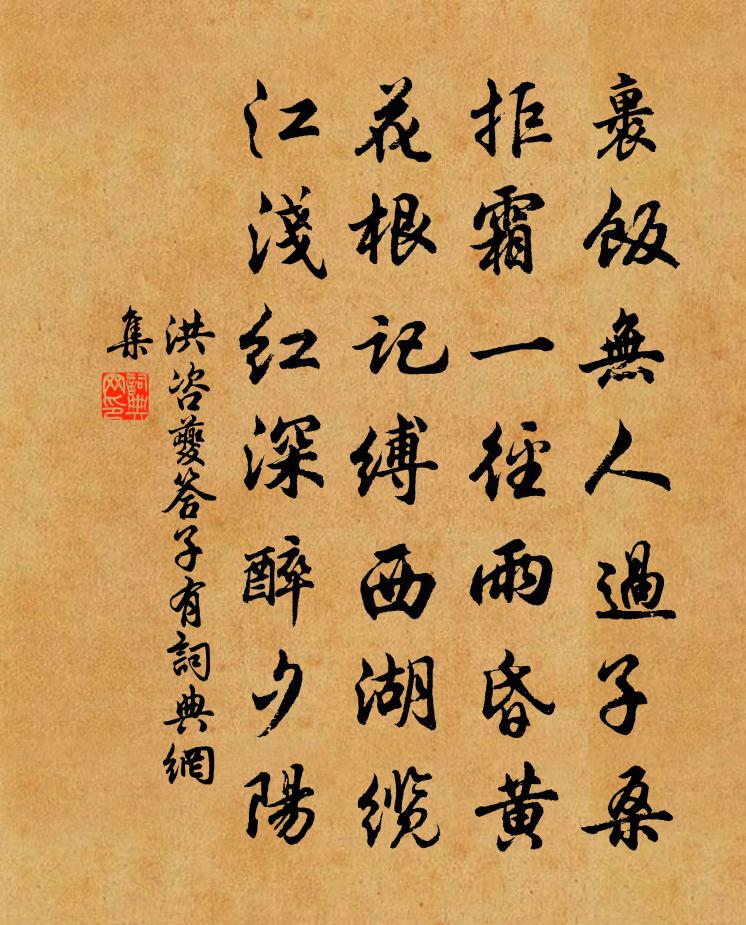 裹飯無人過子桑
拒霜一徑雨昏黃
花根記縛西湖纜
江淺紅深醉夕陽
洪咨夔答子有詞典網
集
詞典
网印